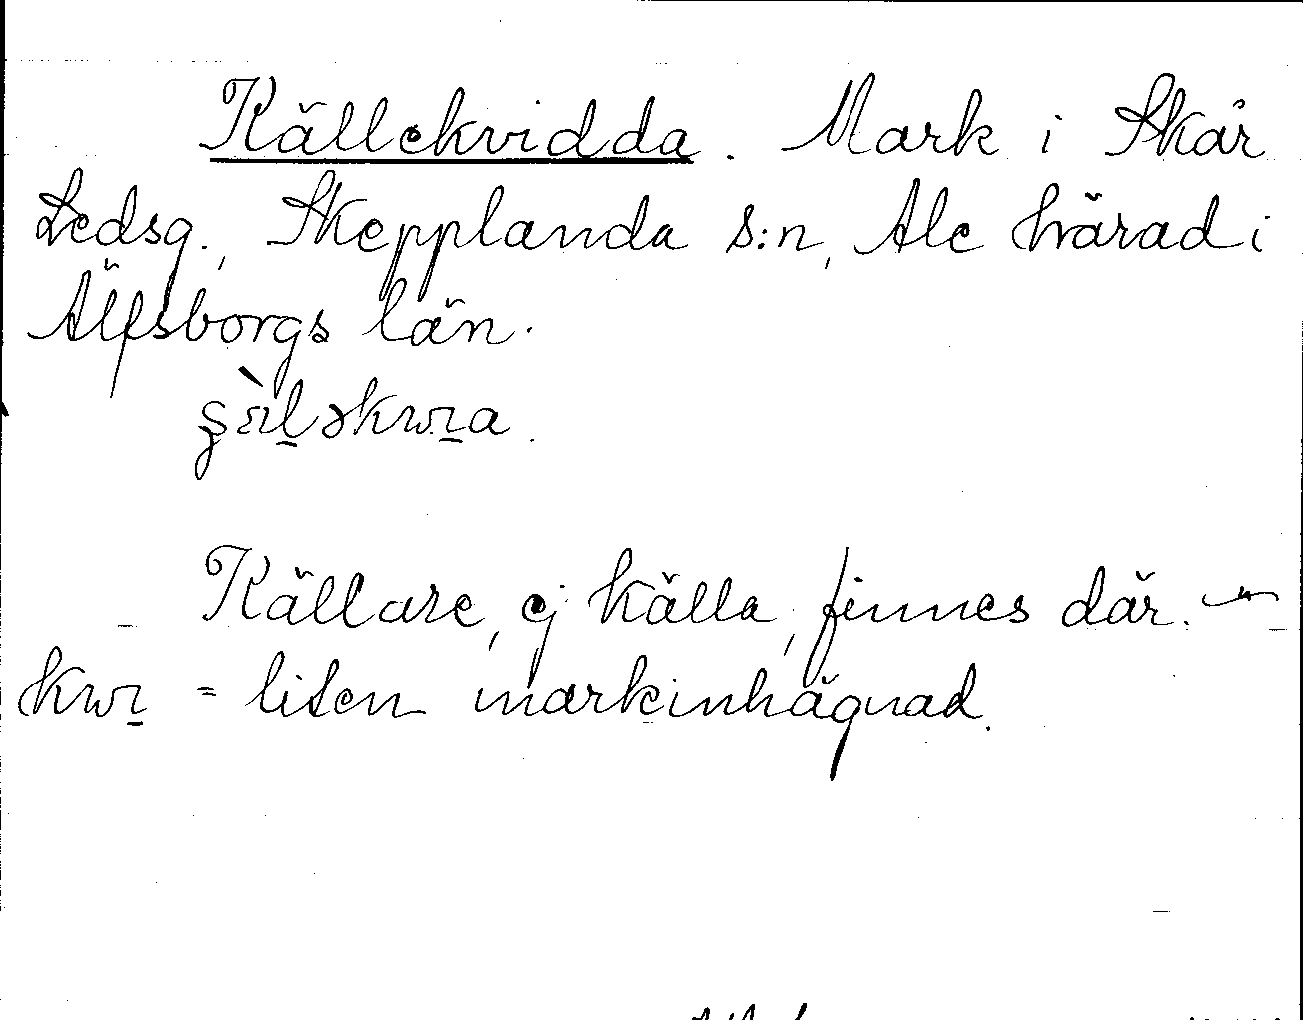 Källekvidda. Mark i Skår
Ledsg., Skepplanda s:n, Ale härad i
Älfsborgs län.
Källare, ej källa, finnes där. —
= liten markinhägnad.